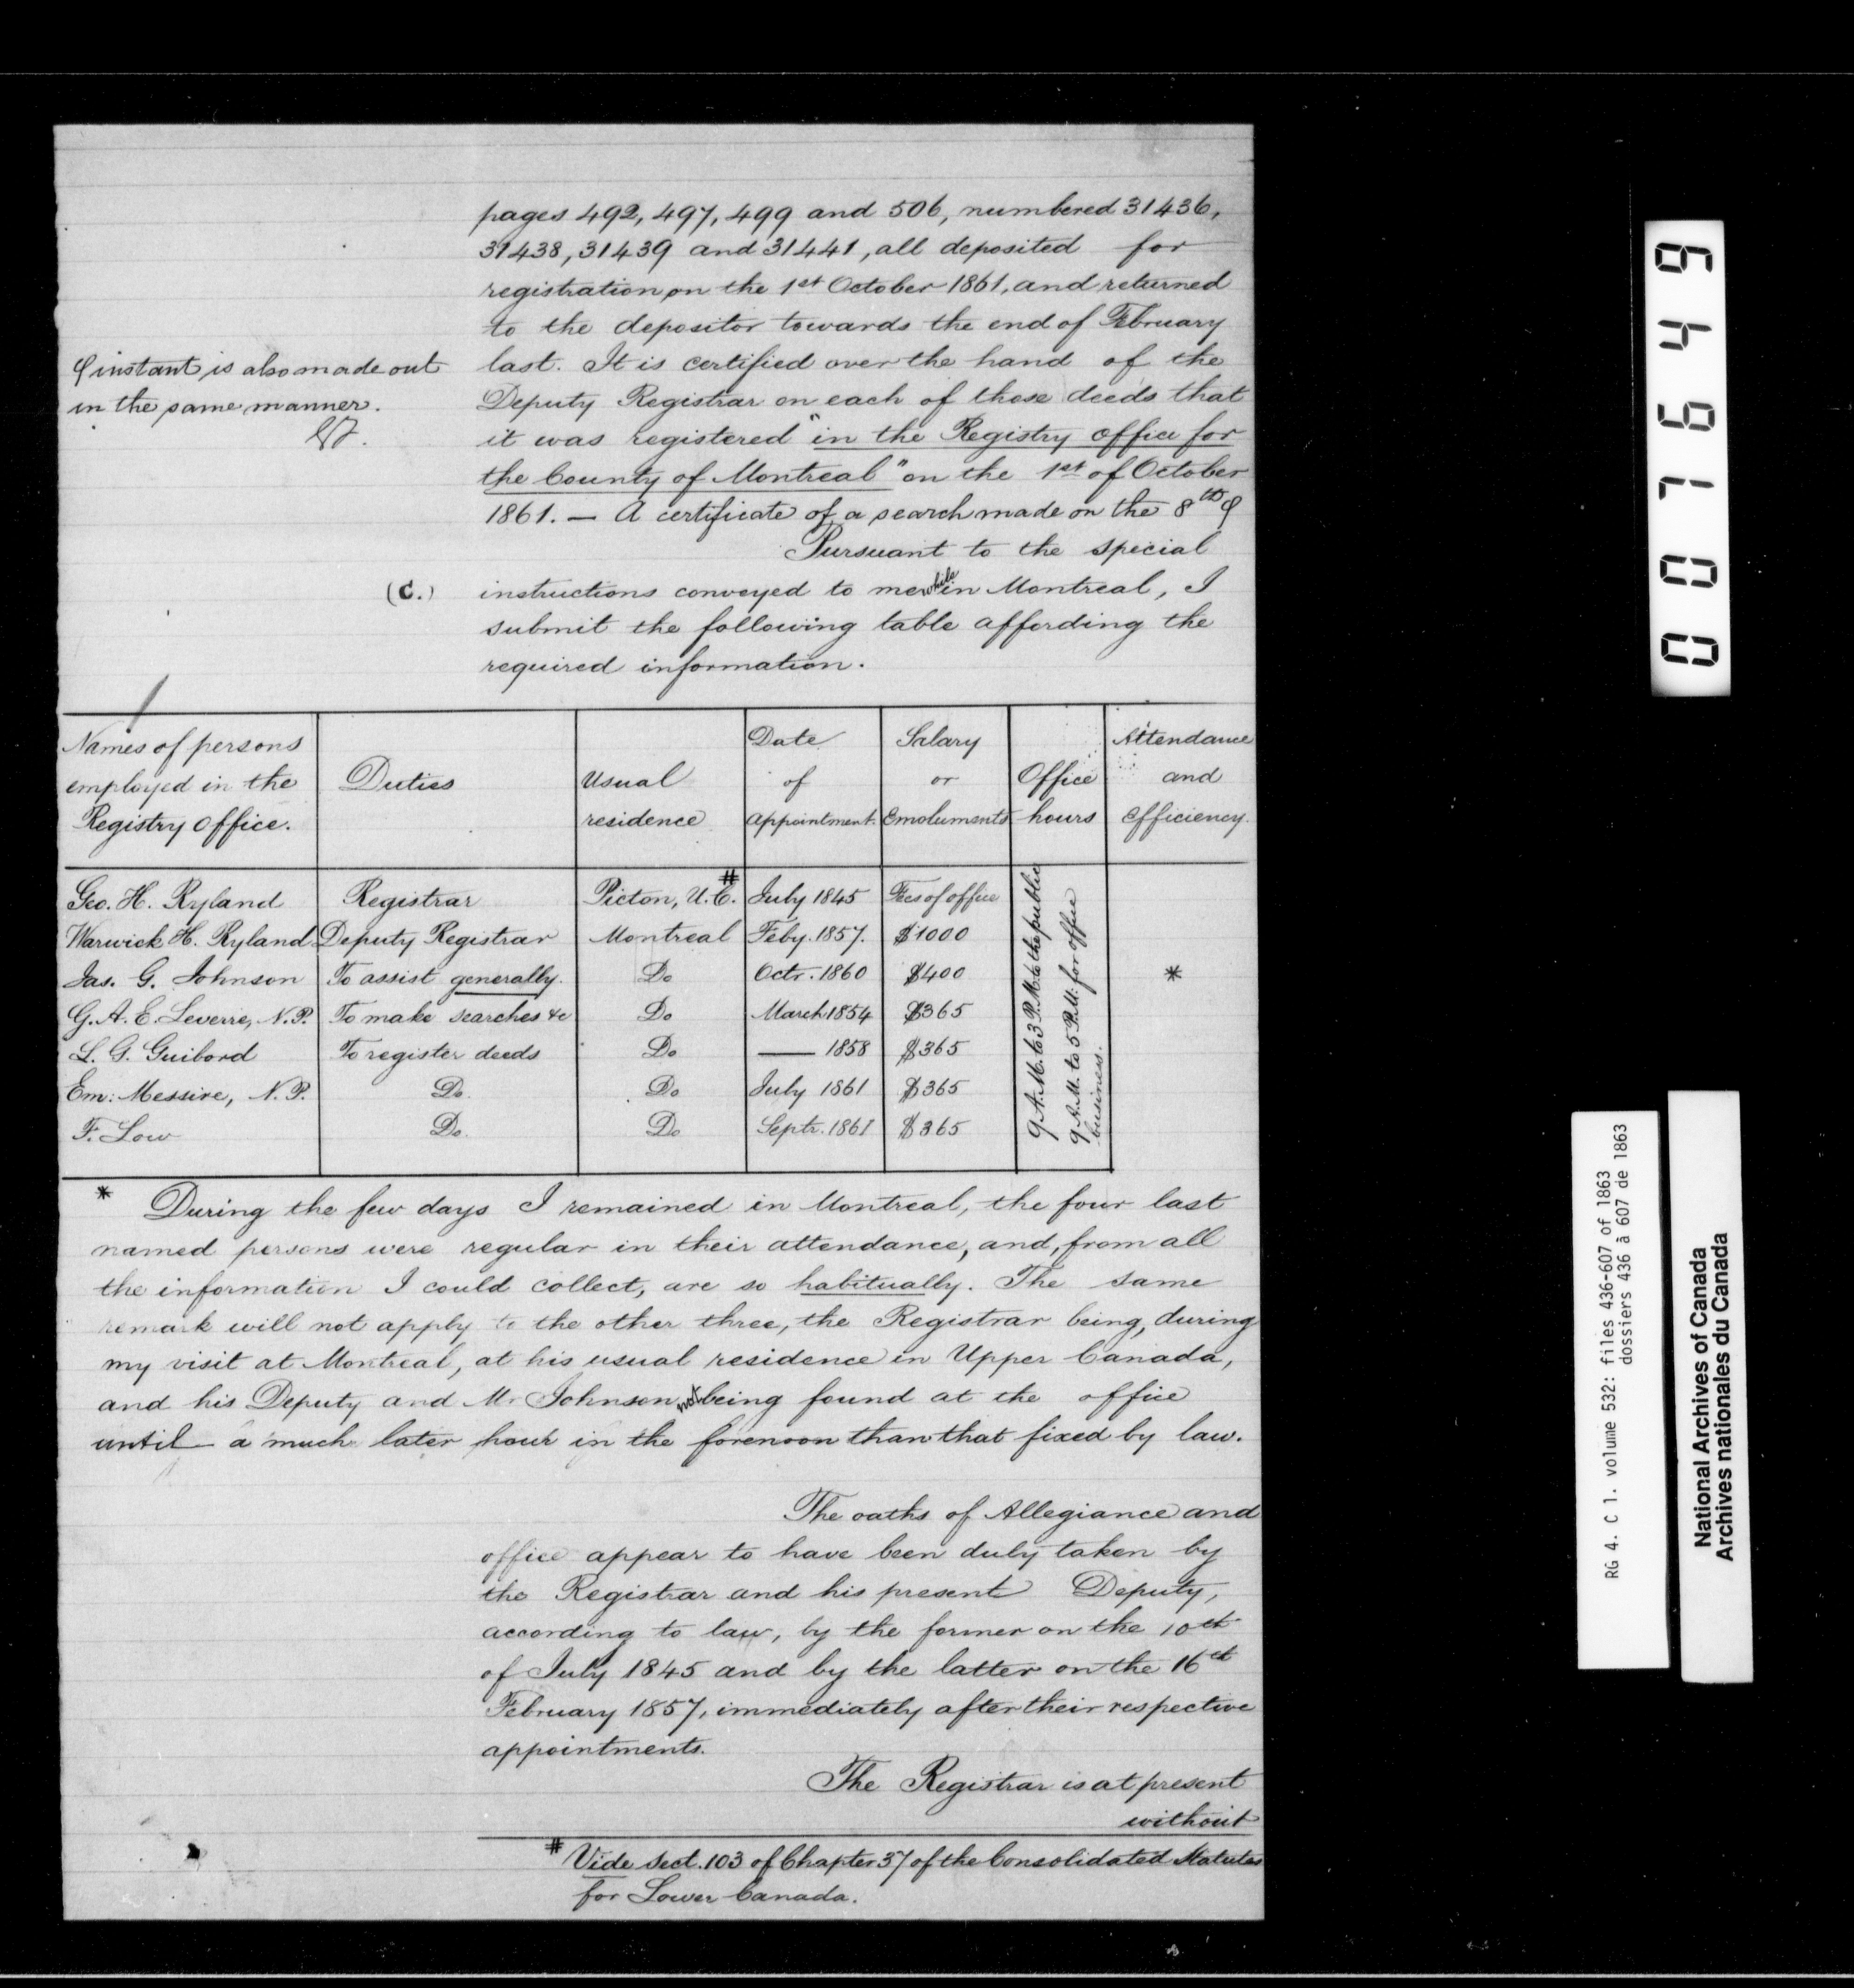 pages 492, 497, 499 and 506, numbered 31436,
31438, 31439 and 31441, all deposited for
registration on the 1st October 1861, and returned
to the depositor towards the end of February
last. It is certified over the hand of the
Deputy Registrar on each of those deeds that
it was registered "in the Registry office for
the County of Montreal" on the 1st of October
1861. — A certificate of a search made on the 8th φ
φ instant is also made out
in the same manner.
Pursuant to the special
(C.) instructions conveyed to me while in Montreal, I
submit the following table affording the
required information.
Names of persons employed in the Registry office. | Duties | Usual residence | Date of appointment. | Salary or Emoluments | Office hours | Attendance and efficiency.
Geo. H. Ryland | Registrar | Picton, U.C. # | July 1845 | Fees of office
Warwick H. Ryland | Deputy Registrar | Montreal | Feby. 1857. | $1000
Jas. G. Johnson | To assist generally. | Do | Octr. 1860 | $400 | *
G. A. E. Leverre, N.P. | To make searches &c | Do | March 1854 | $365
L. G. Guibord | To register deeds | Do | — 1858 | $365
Em: Messire, N.P. | Do. | Do | July 1861 | $365
F. Low | Do. | Do | Septr. 1861 | $365
9 A.M. to 3 P.M. to the public
9 A.M. to 5 P.M. for office
business.
* During the few days I remained in Montreal, the four last
named persons were regular in their attendance, and, from all
the information I could collect, are so habitually. The same
remark will not apply to the other three, the Registrar being, during
my visit at Montreal, at his usual residence in Upper Canada,
and his Deputy and Mr Johnson not being found at the office
until a much later hour in the forenoon than that fixed by law.
The oaths of Allegiance and
office appear to have been duly taken by
the Registrar and his present Deputy,
according to law, by the former on the 10th
of July 1845 and by the latter on the 16th
February 1857, immediately after their respective
appointments.
The Registrar is at present
without
# Vide Sect. 103 of Chapter 37 of the Consolidated Statutes
for Lower Canada.
007649
RG 4. C 1. volume 532: files 436-607 of 1863
dossiers 436 à 607 de 1863
National Archives of Canada
Archives nationales du Canada